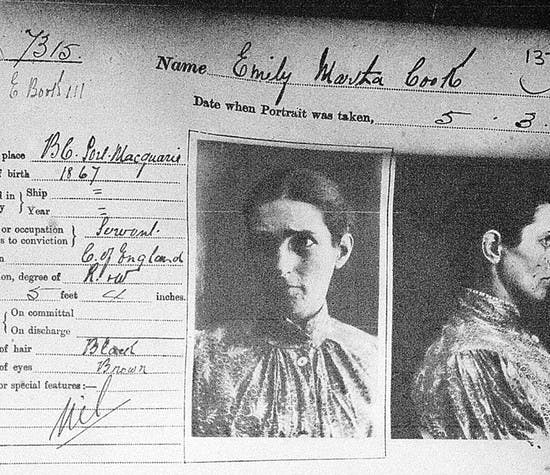 7315.
E Book III
Name Emily Martha Cook
13
Date when Portrait was taken, 5 . 3
place B.C. Port Macquarie
f birth 1867
d in } Ship =
y } Year =
or occupation } Servant.
s to conviction }
n C. of England
on, degree of R. & W
5 feet 4 inches.
{ On committal
{ On discharge
of hair Black
of eyes Brown
or special features:—
Nil